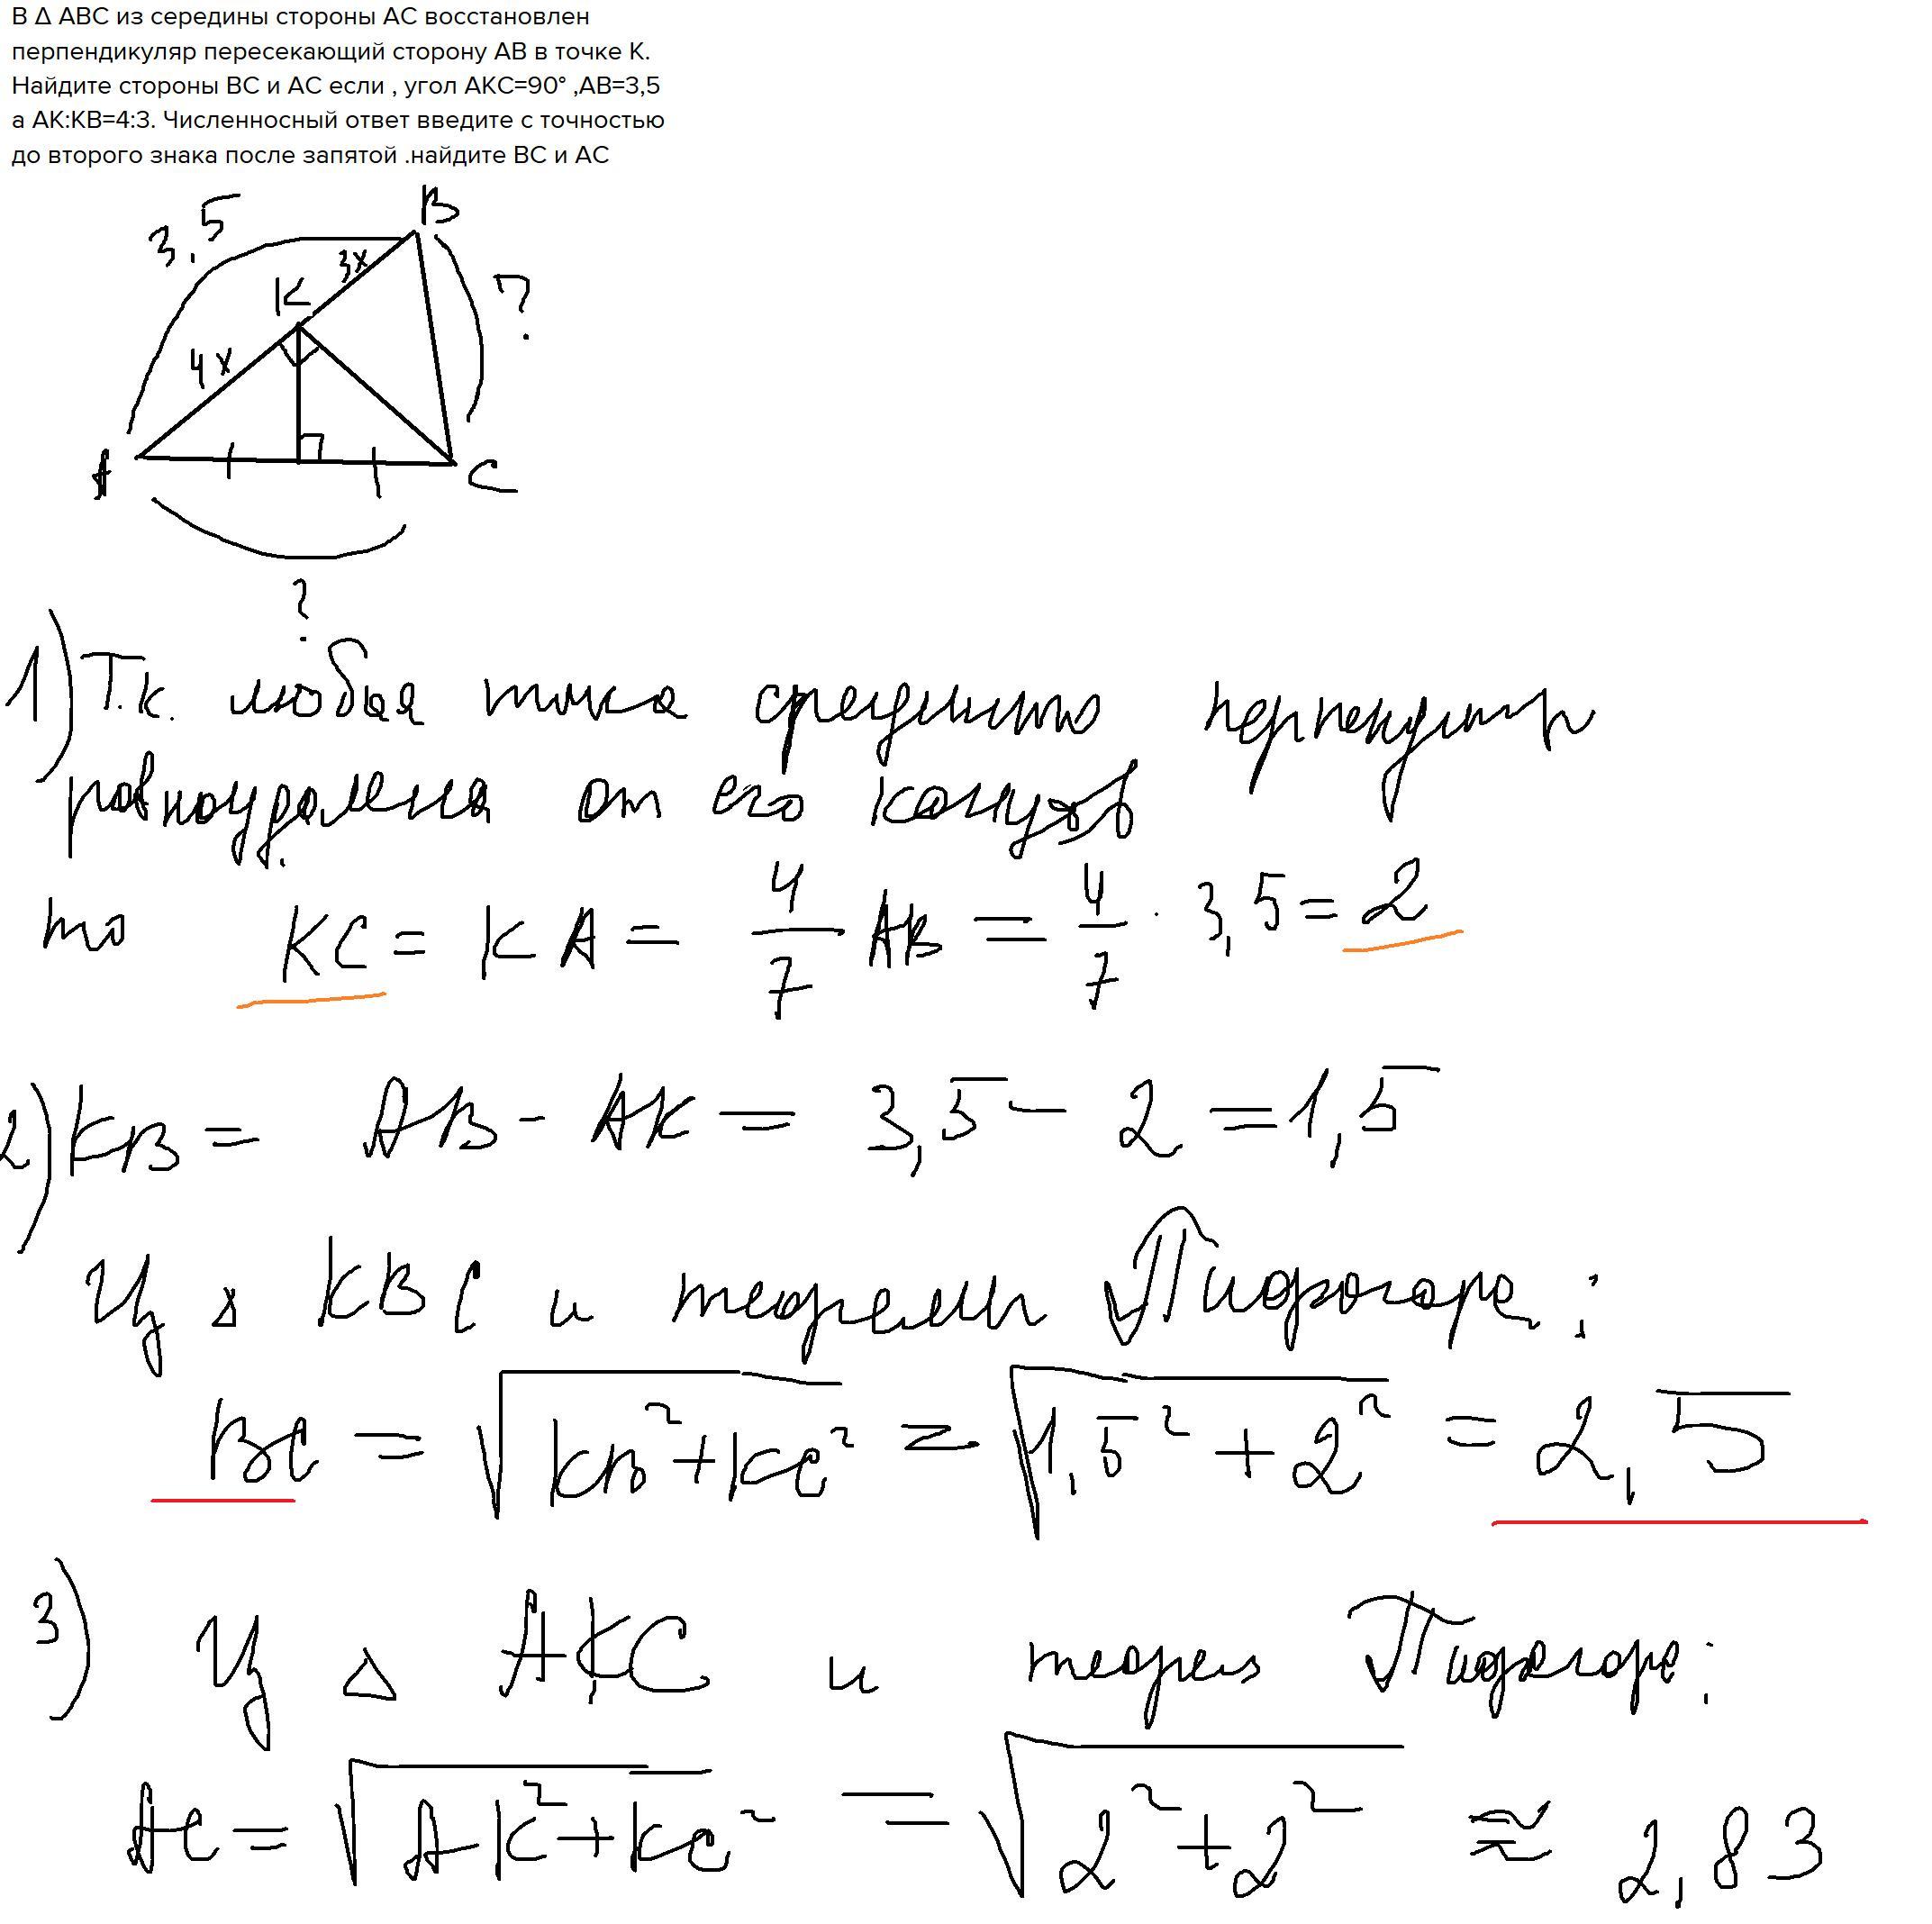 В Δ АВС из середины стороны АС восстановлен
перпендикуляр пересекающий сторону АВ в точке К.
Найдите стороны ВС и АС если , угол АКС=90° ,АВ=3,5
а АК:КВ=4:3. Численносный ответ введите с точностью
до второго знака после запятой .найдите ВС и АС
3,5
В
3х
К
?
4х
А
С
?
1) Т.к. любая точка
равноудалена от его концов
то КС = КА = 4/7 АВ = 4/7 · 3,5 = 2
2) КВ = АВ - АК = 3,5 - 2 = 1,5
Из Δ КВС и теоремы Пифагора :
ВС = √КВ²+КС² = √1,5²+2² = 2,5
3) Из Δ АКС и Пифагора :
АС = √АК²+КС² = √2²+2² ≈ 2,83